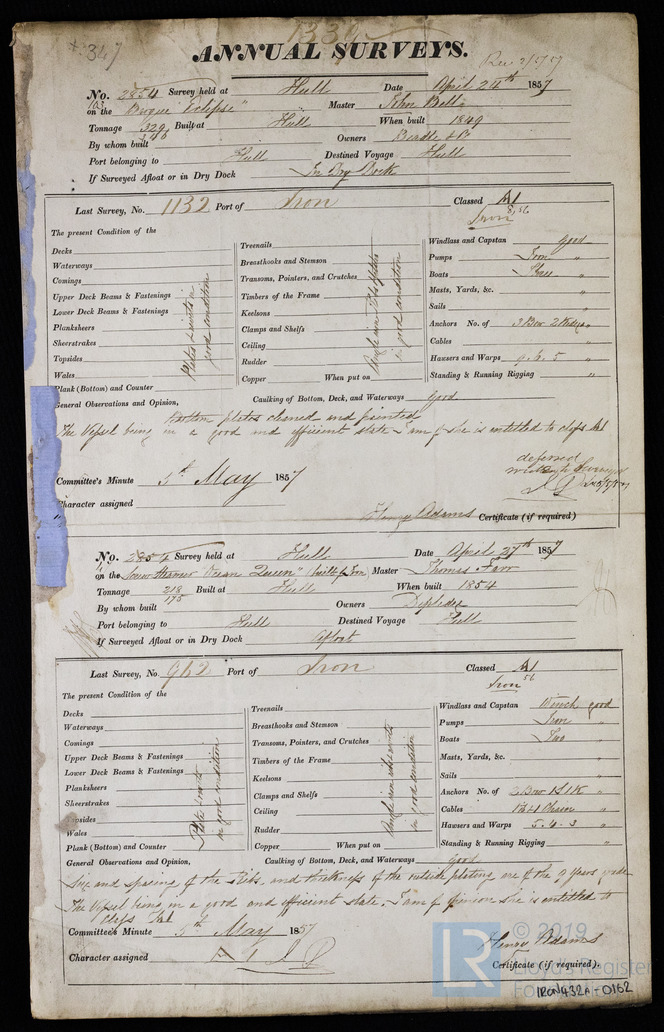 1339
347
ANNUAL SURVEYS.
Rec 2/5/57
No. 2854 Survey held at Hull Date April 24th 1857
103 on the Barque "Eclipse" Master John Bell
Tonnage 329 Built at Hull When built 1849
246
By whom built Owners Beadle & Co
Port belonging to Hull Destined Voyage Hull
If Surveyed Afloat or in Dry Dock In Dry Dock
Last Survey, No. 1132 Port of Iron Classed A1
Iron 8,56
The present Condition of the
Decks
Waterways
Comings
Upper Deck Beams & Fastenings
Lower Deck Beams & Fastenings
Planksheers
Sheerstrakes
Topsides
Wales
Plank (Bottom) and Counter
Plates & rivets in
good condition
Treenails
Breasthooks and Stemson
Transoms, Pointers, and Crutches
Timbers of the Frame
Keelsons
Clamps and Shelfs
Ceiling
Rudder
Copper When put on
Angle iron ribs & plates
in good condition
Windlass and Capstan good
Pumps Iron "
Boats Three "
Masts, Yards, &c. "
Sails "
Anchors No. of 3 Bow 2 Kedges "
Cables "
Hawsers and Warps 9. 6. 5 "
Standing & Running Rigging "
General Observations and Opinion, Caulking of Bottom, Deck, and Waterways good
bottom plates cleaned and painted
The Vessel being in a good and efficient state I am of she is entitled to class A1
deferred
Committee's Minute 5th May 1857
Character assigned
Henry Adams Certificate (if required)
No. 2854 Survey held at Hull Date April 27th 1857
on the Screw Steamer "Ocean Queen" (built of Iron) Master Thomas Farr
Tonnage 218 Built at Hull When built 1854
175
By whom built Owners Depledge
Port belonging to Hull Destined Voyage Hull
If Surveyed Afloat or in Dry Dock Afloat
Last Survey, No. 962 Port of Iron Classed A1
Iron 56
The present Condition of the
Decks
Waterways
Comings
Upper Deck Beams & Fastenings
Lower Deck Beams & Fastenings
Planksheers
Sheerstrakes
Topsides
Wales
Plank (Bottom) and Counter
Plates & rivets
in good condition
Treenails
Breasthooks and Stemson
Transoms, Pointers, and Crutches
Timbers of the Frame
Keelsons
Clamps and Shelfs
Ceiling
Rudder
Copper When put on
Angle iron ribs & rivets
in good condition
Windlass and Capstan Winch good
Pumps Iron "
Boats Two "
Masts, Yards, &c. "
Sails "
Anchors No. of 2 Bow 1 S 1 K "
Cables "
Hawsers and Warps 5. 4. 3 "
Standing & Running Rigging "
General Observations and Opinion, Caulking of Bottom, Deck, and Waterways good
Size and spacing of the Ribs, and thickness of the outside plating are of the 9 Years grade
The Vessel being in a good and efficient state, I am of opinion she is entitled to
Class A1
Committee's Minute 5th May 1857
Character assigned A 1
Henry Adams
Certificate (if required).
LR
© 2019
Lloyd's Register
IRON432A-0162